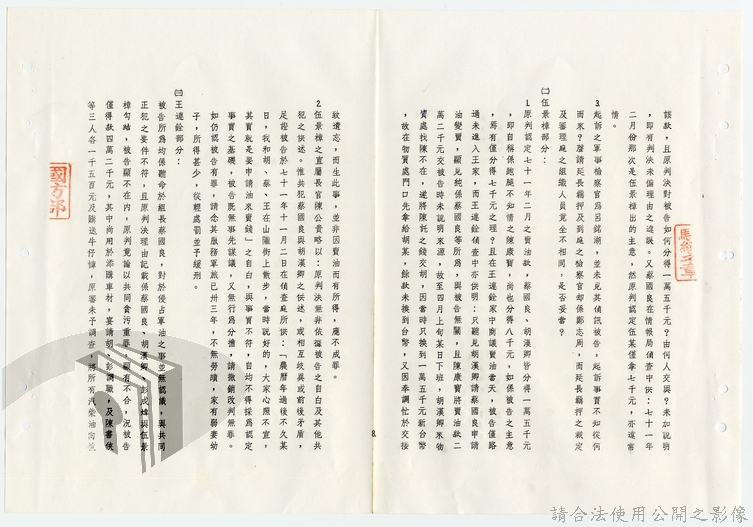 該款，且原判決對被告如何分得一萬五千元？由何人交與？未加說明
，即有判決未備理由之違誤。又蔡國良在情報局偵查中供：七十一年
二月份那次是伍景樟出的主意，然原判認定伍某僅拿七千元，亦違常
情。
3.起訴之軍事檢察官為呂銘潮，並未見其偵訊被告，起訴事實不知從何
而來？曆請延長羈押及到庭之檢察官却係鄭志周，而延長羈押之裁定
及審理庭之組織人員竟全不相同，是否妥當？
㈡伍景樟部分：
1.原判認定七十一年二月之賣油款，蔡國良、胡漢卿皆分得一萬五千元
，即自稱係跑腿不知情之陳康寶，尚也分得八千元，如係被告之主意
，焉有僅分得七千元之理？且在王連銓家中商議賣油當天，被告僅路
過未進入王家，而王連銓偵查中亦供明：只聽見胡漢卿請蔡國良申請
油變賣，顯見純係蔡國良等所為，與被告無關，且陳康寶將賣油款二
萬二千元交被告時未說明來源，故至四月上旬某日下班，胡漢卿來物
資處找陳不在，遂將陳託之錢交胡，因當時只換到一萬五千元新台幣
，故在物資處門口先拿給胡某，餘款未換到台幣，又因奉調忙於交接
8.
致遺忘，而生此事，並非因賣油而有所得，應不成罪。
2.伍景樟之直屬長官陳公貴略以：原判決無非依據被告之自白及其他共
犯之供述。惟共犯蔡國良與胡漢卿之供述，或相互歧異或前後矛盾，
足證被告於七十一年十一月二日在偵查庭所供：「農曆年過後不久某
日，我和胡、蔡、王在山隴街上散步，當時說好的，大家心照不宣，
其實就是要申請油來賣錢」之自白，與事實不符，自均不得採為認定
事實之基礎，被告既無事先謀議，又無行為分擔，請撤銷改判無罪。
如仍認被告有罪，請念其服務軍旅已卅三年，不無勞績，家有弱妻幼
子，所得甚少，從輕處罰並予緩刑。
㈢王連銓部分：
被告所為均係聽命於組長蔡國良，對於侵占軍油之事並無認識，與共同
正犯之要件不符，且原判決理由記載係蔡國良、胡漢卿、彭成煒與伍景
樟勾結，被告顯不在內，原判竟論以共同貪污重罪，顯有不合，況被告
僅得款四萬二千元，其中尚用於添購車材，宴請胡、彭調職，及陳書俠
等三人各一千五百元及贈送牛仔褲，原審未予調查，將所有汽柴油向
國防部
請合法使用公開之影像